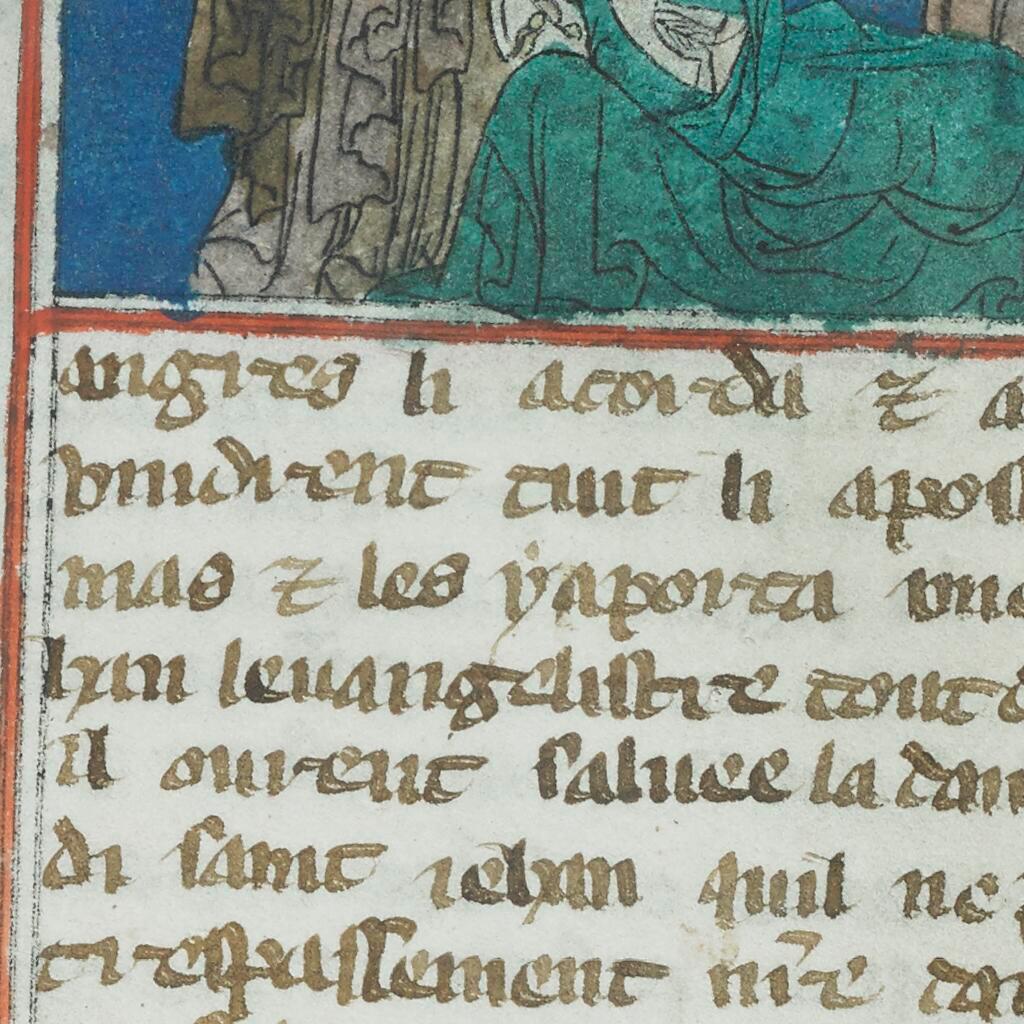 angres li acorda ⁊ a
vindrent tuit li apost
mas ⁊ les y aporta vne
han leuangelistre tout
il ourent saluee la dam
di saint iehan quil ne
trespassement nr̄e dam